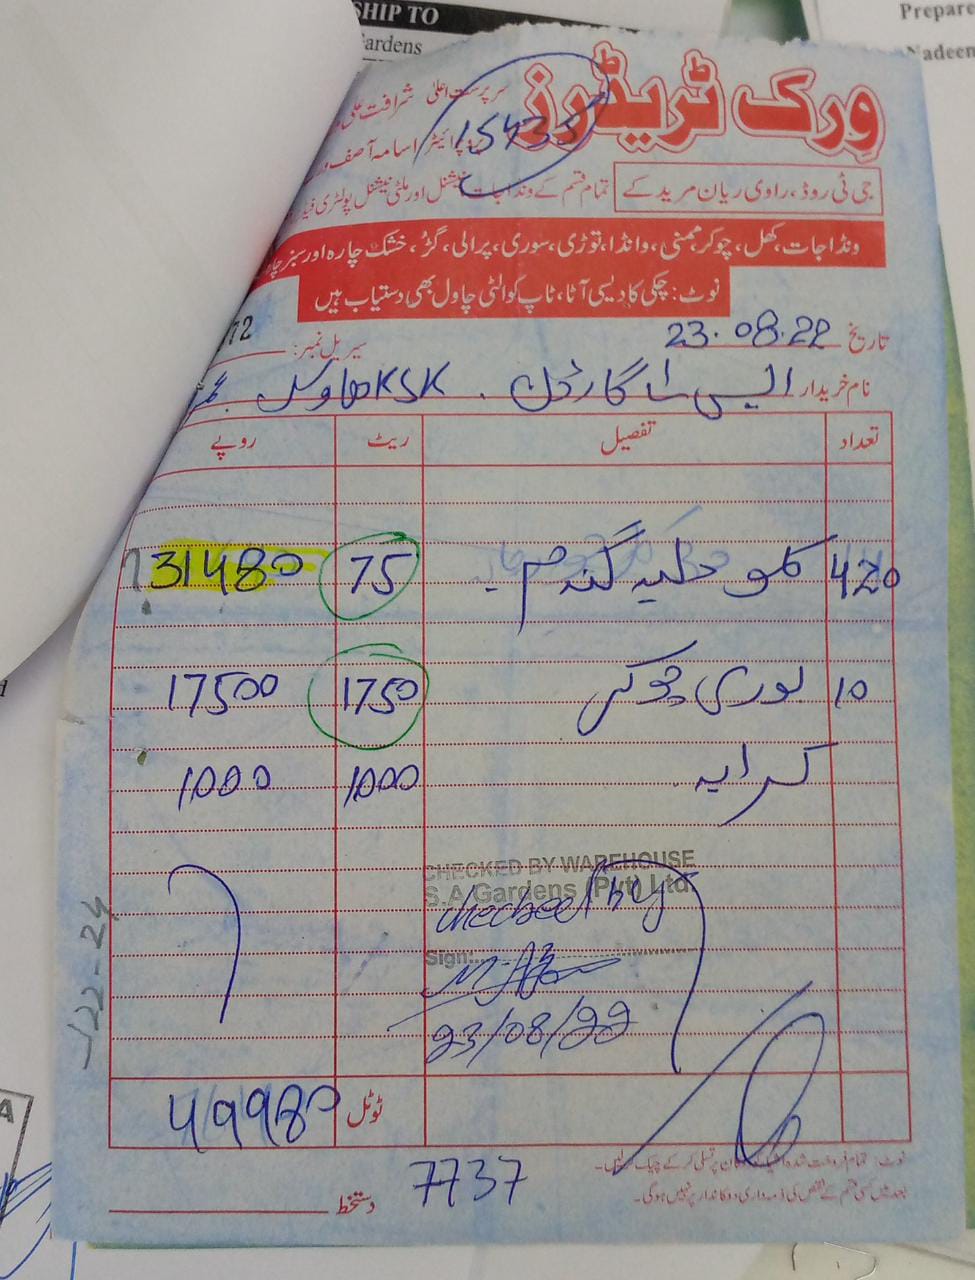 SHIP TO
Gardens
Prepare
Nadeem
ورک ٹریڈرز
سرپرست اعلیٰ شرافت علی
15435
اسامہ آصف
جی ٹی روڈ، راوی ریان مریدکے
تمام قسم کے ونڈاجات نیشنل اور ملٹی نیشنل پولٹری فیڈ
ونڈاجات، کھل، چوکر، ممنی، وانڈا، توڑی، سوری، پرالی، گڑ، خشک چارہ اور سبز چارہ
نوٹ: چکی کا دیسی آٹا، ٹاپ کوالٹی چاول بھی دستیاب ہیں
تاریخ 23.08.22
سیریل نمبر: 72
نام خریدار ایس اے گارڈن . KSK ھاوس
تعداد تفصیل ریٹ روپے
420 کلو دلیہ گندم 75 31480
10 بوری چوکر 1750 17500
کرایہ 1000 1000
CHECKED BY WAREHOUSE
S.A Gardens (Pvt) Ltd
checked by
Sign:
23/08/22
-122-24
ٹوٹل 49980
نوٹ: تمام فروخت شدہ اشیاء دکان پر تسلی کر کے چیک کر لیں۔
بعد میں کسی قسم کے نقص کی ذمہ داری دوکاندار پر نہیں ہوگی۔
7737
دستخط